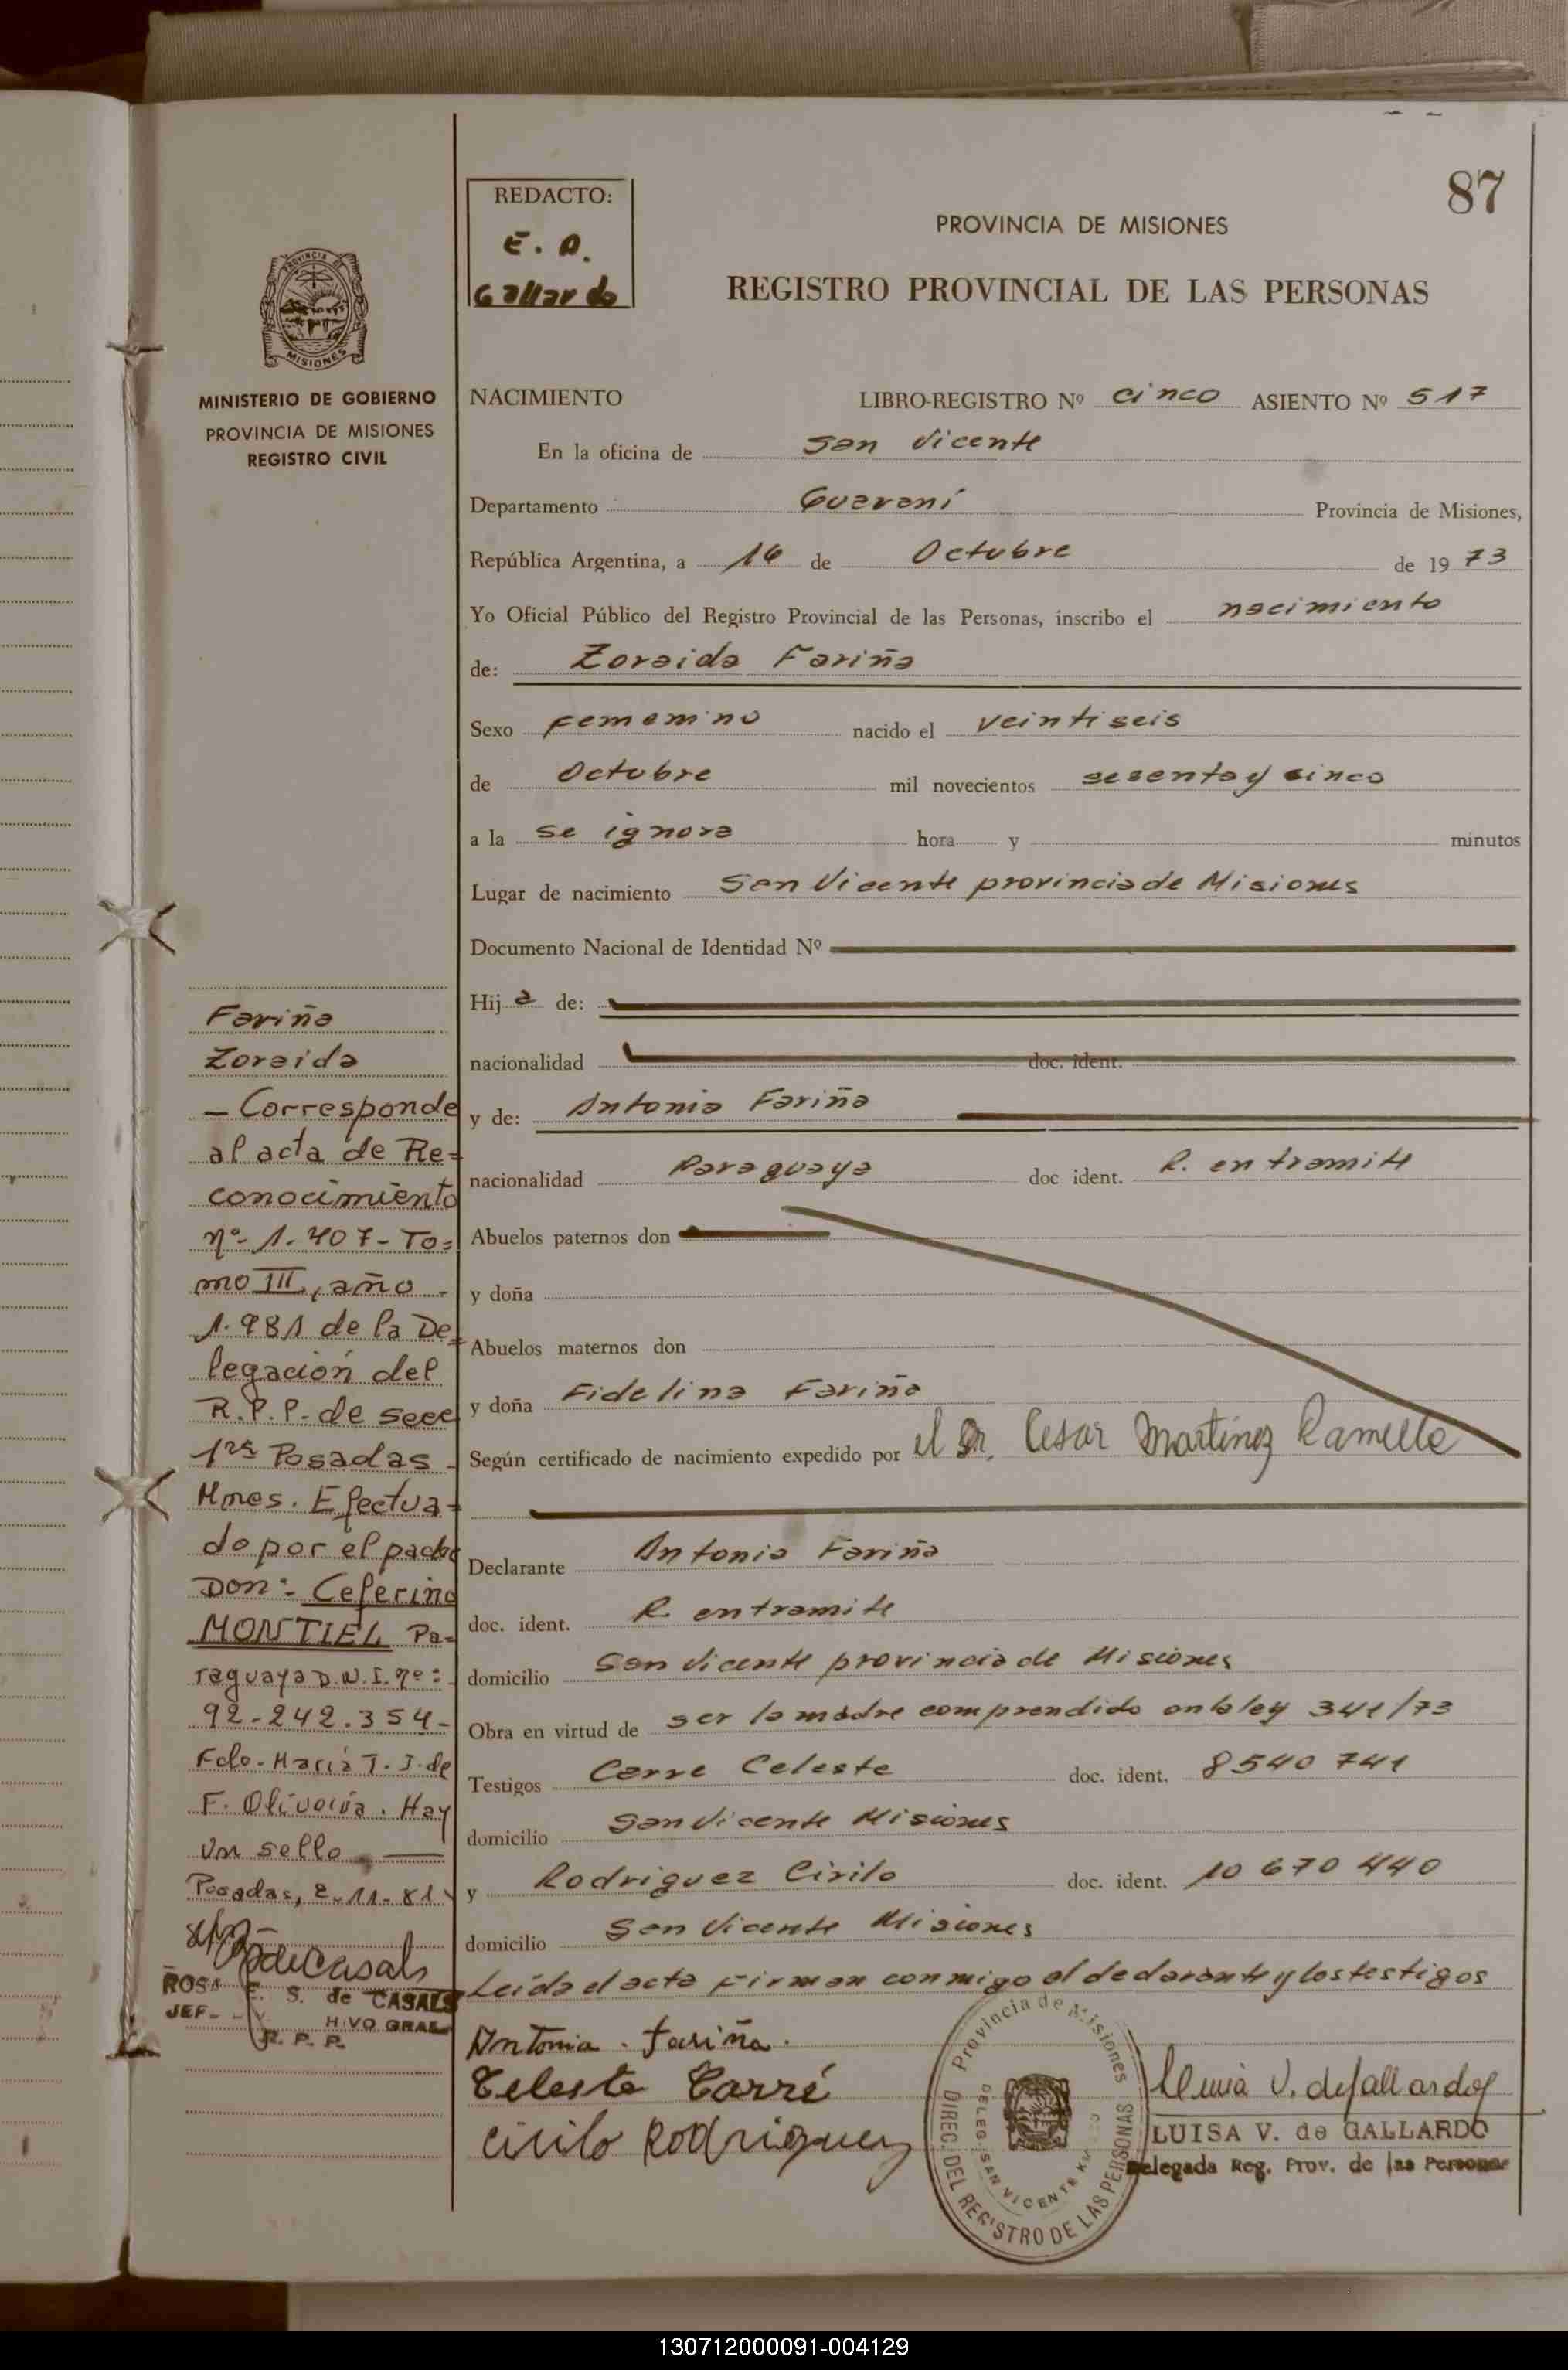 87
REDACTO:
E. A.
Gallardo
PROVINCIA DE MISIONES
REGISTRO PROVINCIAL DE LAS PERSONAS
PROVINCIA DE
MISIONES
MINISTERIO DE GOBIERNO
PROVINCIA DE MISIONES
REGISTRO CIVIL
NACIMIENTO LIBRO-REGISTRO Nº cinco ASIENTO Nº 517
En la oficina de San Vicente
Departamento Guaraní Provincia de Misiones,
República Argentina, a 16 de Octubre de 1973
Yo Oficial Público del Registro Provincial de las Personas, inscribo el nacimiento
de: Zoraida Fariña
Sexo femenino nacido el veintiseis
de Octubre mil novecientos sesenta y cinco
a la se ignora hora y minutos
Lugar de nacimiento San Vicente provincia de Misiones
Documento Nacional de Identidad Nº
Hija de:
nacionalidad doc. ident.
y de: Antonia Fariña
nacionalidad Paraguaya doc ident. R. en tramite
Abuelos paternos don
y doña
Abuelos maternos don
y doña Fidelina Fariña
Según certificado de nacimiento expedido por el Dr. Cesar Martinez Ramella
Declarante Antonia Fariña
doc. ident. R. en tramite
domicilio San Vicente provincia de Misiones
Obra en virtud de ser la madre comprendido en la ley 341/73
Testigos Carre Celeste doc. ident. 8540 741
domicilio San Vicente Misiones
y Rodriguez Cirilo doc. ident. 10 670 440
domicilio San Vicente Misiones
Leída el acta firman conmigo el declarante y los testigos
Antonia Fariña.
Celeste Carré
Cirilo Rodriguez
Provincia de Misiones
DIREC. DEL REGISTRO DE LAS PERSONAS
DELEG. SAN VICENTE
V. de Gallardo
LUISA V. de GALLARDO
Delegada Reg. Prov. de las Personas
Fariña
Zoraida
- Corresponde
al acta de Re=
conocimiento
nº- 1.407- To=
mo III, año -
1.981 de la De=
legación del
R.P.P. de Secc
1ra Posadas -
Mnes. Efectua=
do por el padre
Don:- Ceferino
MONTIEL Pa-
raguaya D.N.I. nº:
92-242.354-
Fdo- María T. J. de
F. Oliveira. Hay
un sello
Posadas, 2-11-81
de Casals
ROSA E. S. de CASALS
JEF- H VO GRAL
R. P. P.
130712000091-004129